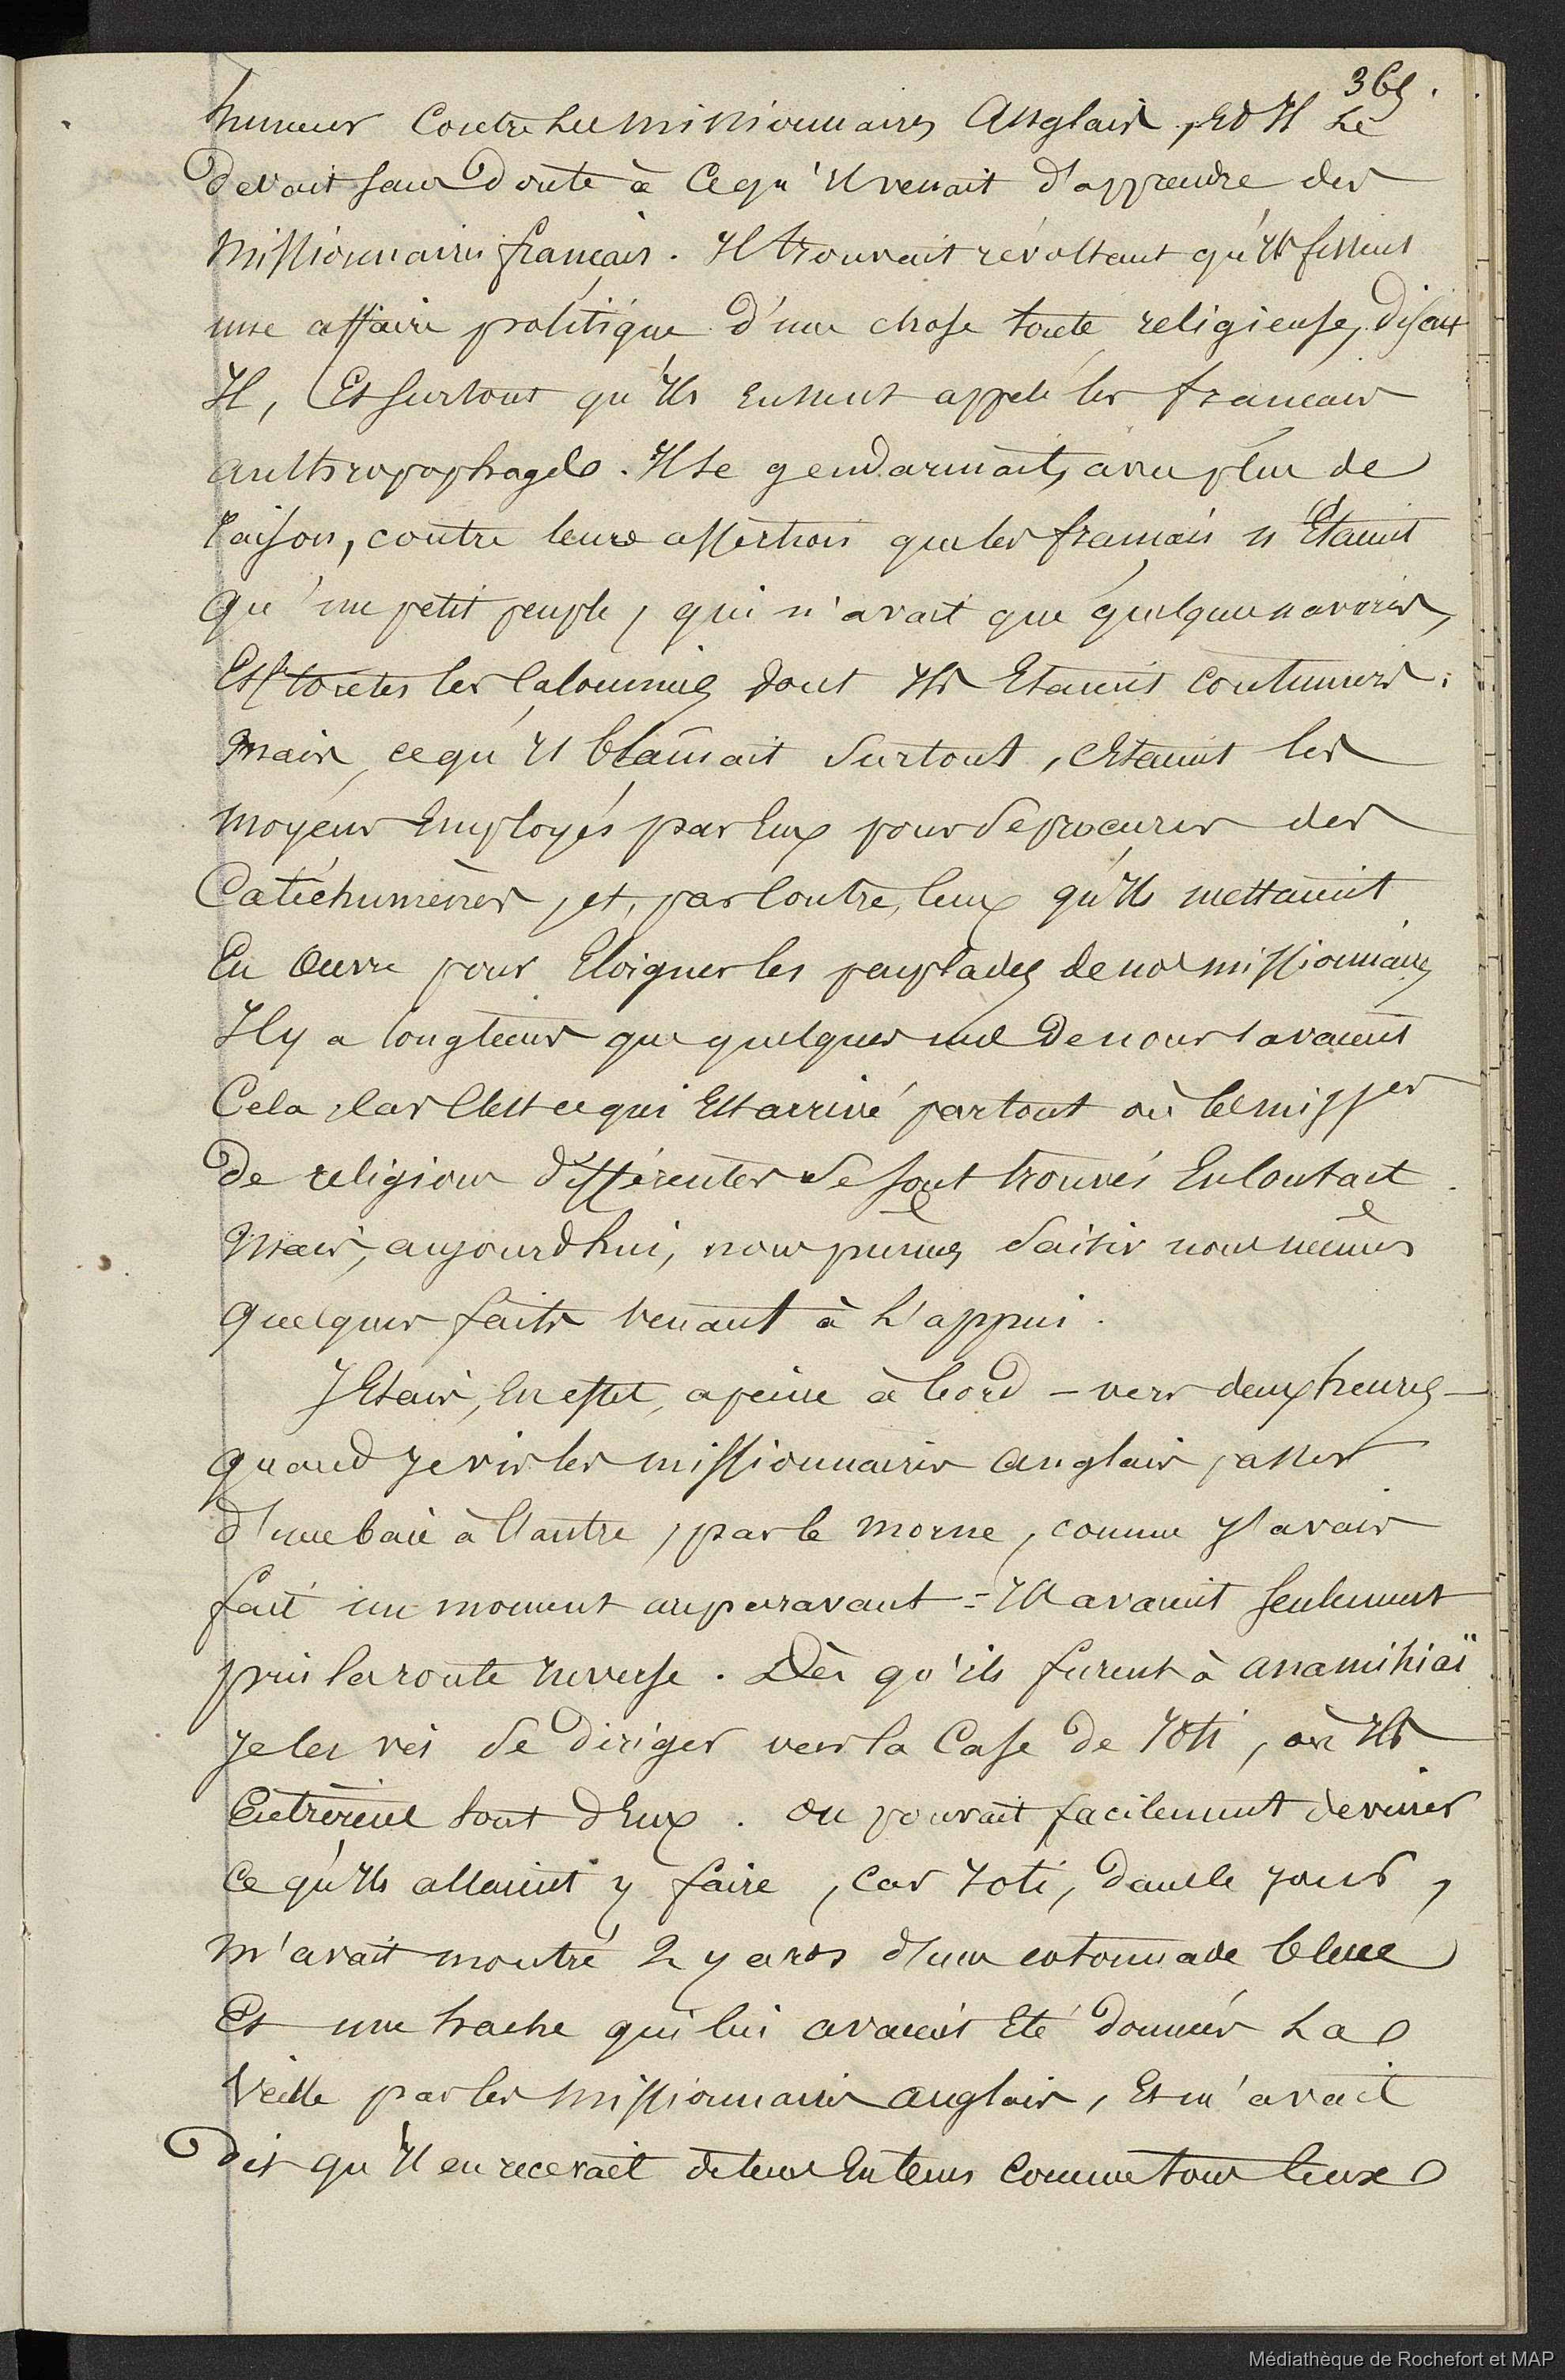 369.
humeur contre les missionnaires Anglais, Et Il Le
devait sans doute à ce qu'il venait d'apprendre des
missionnaires français. Il trouvait révoltant qu'ils fissent
une affaire politique d'une chose toute religieuse, disait
Il, Et surtout qu'ils eussent appelé les français
anthropophages. Il se gendarmait, avec plus de
raison, contre leurs assertions que les français n'Etaient
qu'un petit peuple, qui n'avait que quelques navires,
Et toutes les calomnies dont Ils Etaient coutumiers:
Mais, ce qu'il blâmait surtout, c'Etaient les
moyens Employés par Eux pour se procurer des
Catéchumènes, et, par contre, ceux qu'ils mettaient
En Œuvre pour Eloigner les peuplades de nos missionnaires
Il y a longtems que quelques uns de nous savaient
Cela, car C'est ce qui Est arrivé partout où les miss.res
de religions différentes se sont trouvés En contact.
Mais, aujourdhui, nous pûmes saisir nous mêmes
quelques faits venant à L'appui.
J'Etais, En effet, a peine à bord – vers deux heures –
quand je vis les missionnaires anglais passer
d'une baie à l'autre, par le morne, comme j'avais
fait un moment auparavant = Ils avaient seulement
pris la route inverse. Dès qu'ils furent à anamihiaï
je les vis se diriger vers la Case de Ioti, où Ils
Entrèrent tous d'Eux. On pouvait facilement deviner
ce qu'ils allaient y faire, car Ioti, dans le jour,
m'avait montré 2 yards d'une cotonnade bleue
Et une hache qui lui avaient Eté données La
Veille par les missionnaires anglais, Et m'avait
dit qu'il en recevait de tems En tems comme tous ceux
Médiathèque de Rochefort et MAP